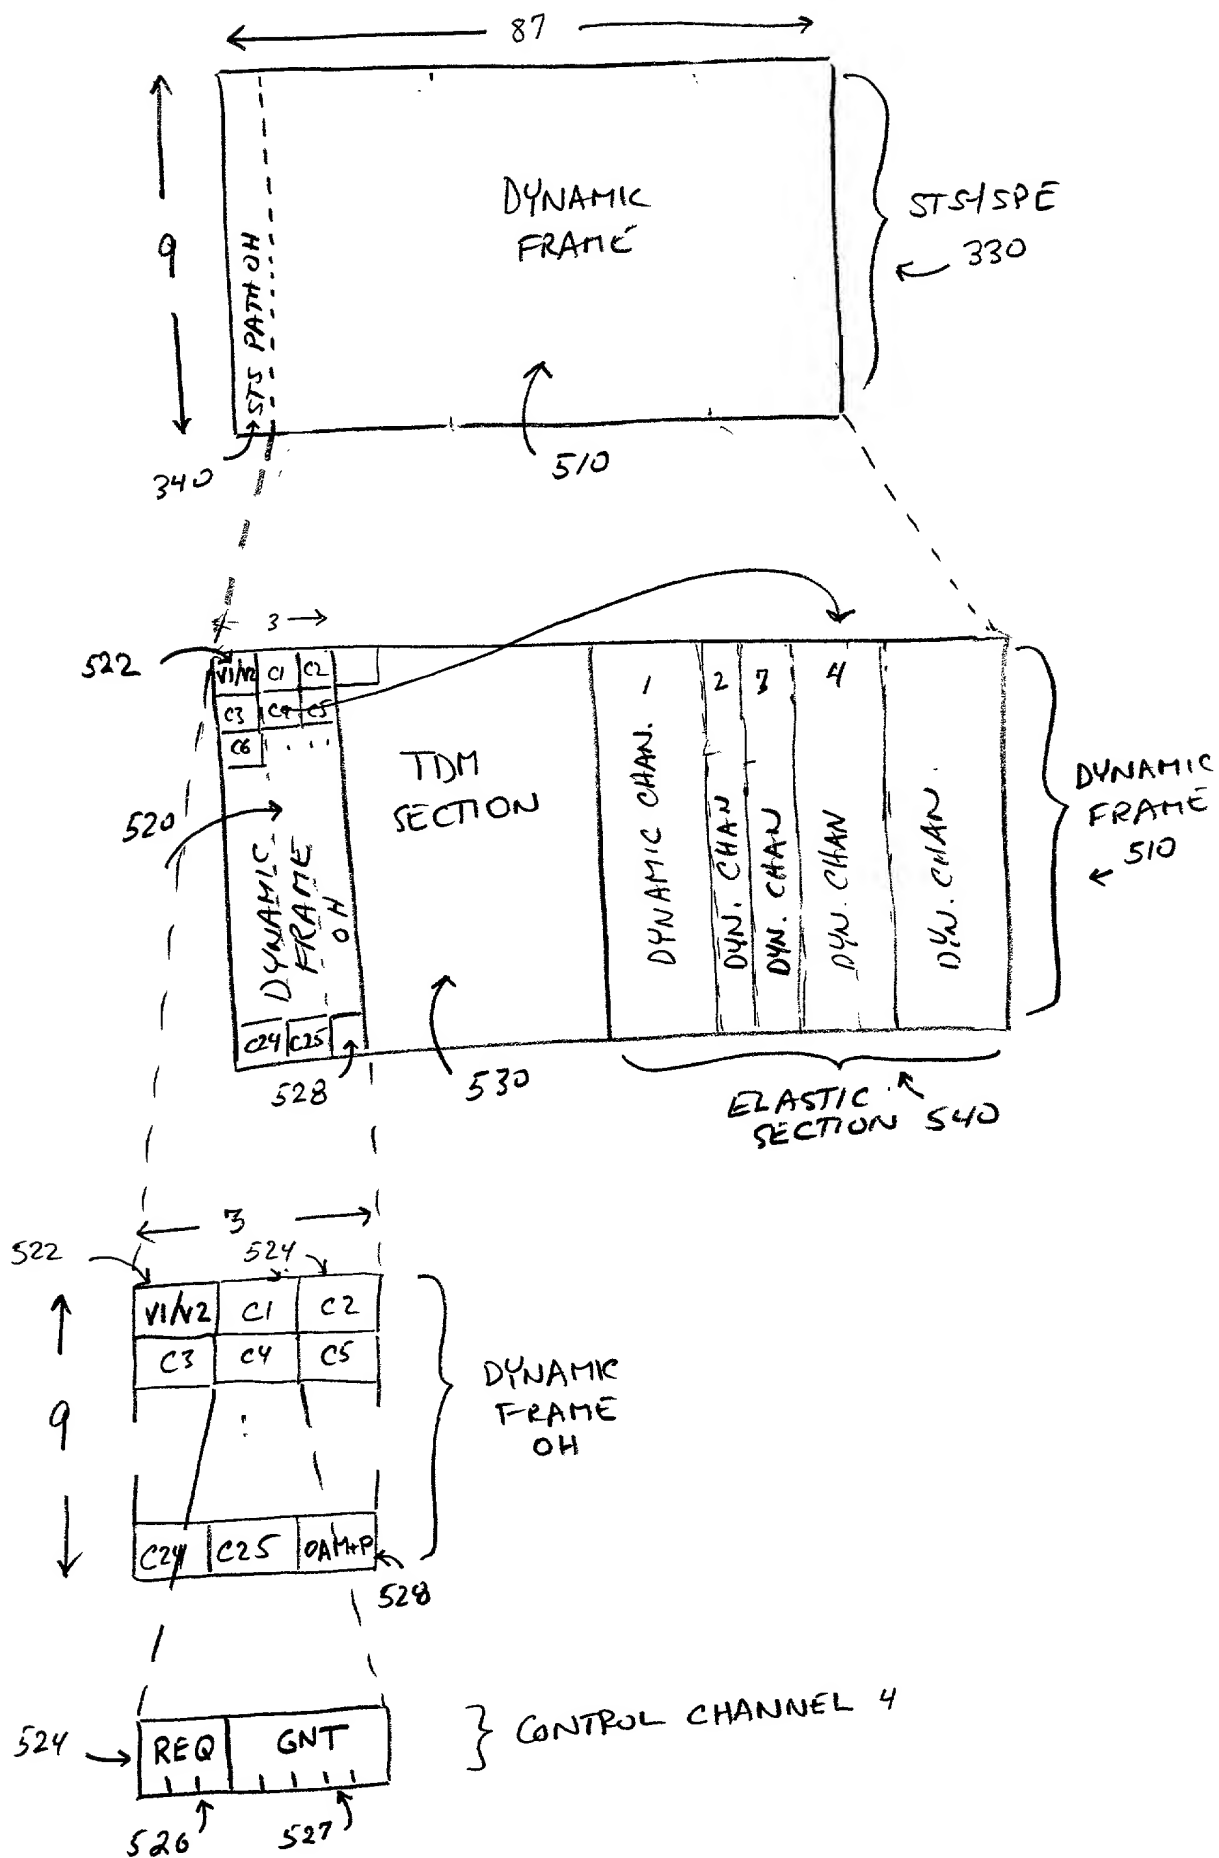 87
9
STS PATH OH
DYNAMIC
FRAME
STS-1 SPE
330
340
510
3
522
V1/V2 C1 C2
C3 C4 C5
C6
520
DYNAMIC
FRAME
OH
C24 C25
528
TDM
SECTION
530
DYNAMIC CHAN. 1
DYN. CHAN 2
DYN. CHAN 3
DYN. CHAN 4
DYN. CHAN.
DYNAMIC
FRAME
510
ELASTIC
SECTION 540
3
522
524
9
V1/V2 C1 C2
C3 C4 C5
C24 C25 OAM+P
528
DYNAMIC
FRAME
OH
524
REQ GNT
526
527
CONTROL CHANNEL 4